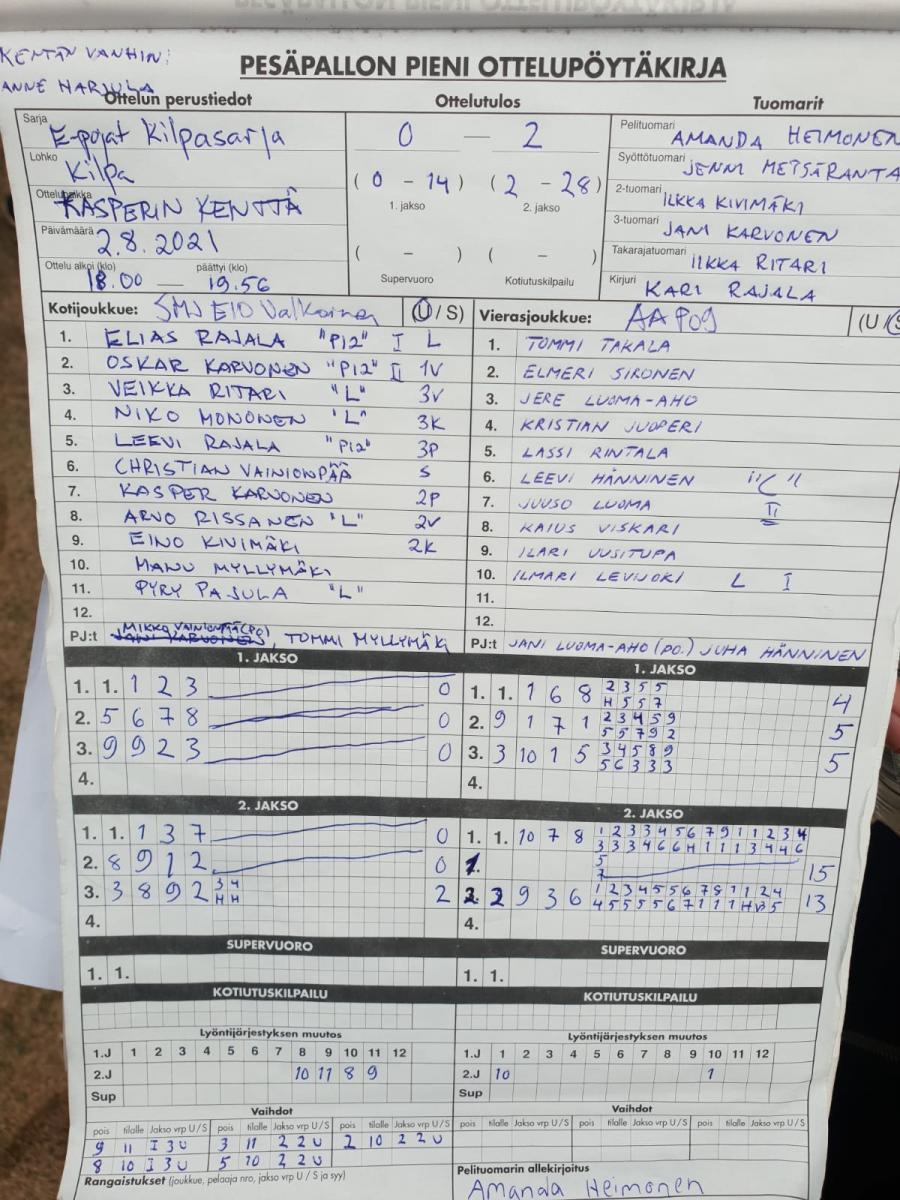 KENTÄN VANHIN:
ANNE HARJULA
PESÄPALLON PIENI OTTELUPÖYTÄKIRJA
Ottelun perustiedot
Sarja E-pojat Kilpasarja
Lohko Kilpa
Ottelupaikka KASPERIN KENTTÄ
Päivämäärä 2.8.2021
Ottelu alkoi (klo) 18.00 — päättyi (klo) 19.56
Ottelutulos
0 — 2
(0 - 14) (2 - 28)
1. jakso 2. jakso
( - ) ( - )
Supervuoro Kotiutuskilpailu
Tuomarit
Pelituomari AMANDA HEIMONEN
Syöttötuomari JENNI METSÄRANTA
2-tuomari ILKKA KIVIMÄKI
3-tuomari JANI KARVONEN
Takarajatuomari ILKKA RITARI
Kirjuri KARI RAJALA
Kotijoukkue: SMJ E10 Valkoinen (U / S)
1. ELIAS RAJALA "P12" I L
2. OSKAR KARVONEN "P12" II 1V
3. VEIKKA RITARI "L" 3V
4. NIKO MONONEN "L" 3K
5. LEEVI RAJALA "P12" 3P
6. CHRISTIAN VAINIONPÄÄ S
7. KASPER KARVONEN 2P
8. ARVO RISSANEN "L" 2V
9. EINO KIVIMÄKI 2K
10. MANU MYLLYMÄKI
11. PYRY PAJULA "L"
12.
PJ:t MIKKO VAINIONPÄÄ (PO)
JANI KARVONEN, TOMMI MYLLYMÄKI
Vierasjoukkue: AA P09 (U / S
1. TOMMI TAKALA
2. ELMERI SIRONEN
3. JERE LUOMA-AHO
4. KRISTIAN JUOPERI
5. LASSI RINTALA
6. LEEVI HÄNNINEN "C"
7. JUUSO LUOMA II
8. KAIUS VISKARI
9. ILARI UUSITUPA
10. ILMARI LEVIJOKI L I
11.
12.
PJ:t JANI LUOMA-AHO (PO.) JUHA HÄNNINEN
1. JAKSO
1. 1. 1 2 3 0
2. 5 6 7 8 0
3. 9 9 2 3 0
4.
2. JAKSO
1. 1. 1 3 7 0
2. 8 9 1 2 0
3. 3 8 9 2 3 4 2
H H
4.
SUPERVUORO
1. 1.
KOTIUTUSKILPAILU
1. JAKSO
1. 1. 1 6 8 2 3 5 5 4
H 5 5 7
2. 9 1 7 1 2 3 4 5 9 5
5 5 7 9 2
3. 3 10 1 5 3 4 5 8 9 5
5 6 3 3 3
4.
2. JAKSO
1. 1. 10 7 8 1 2 3 3 4 5 6 7 9 1 1 2 3 4
3 3 3 4 6 6 H 1 1 1 3 4 4 6
5
7 15
2. 2 9 3 6 1 2 3 4 5 5 6 7 8 1 1 2 4 13
4 5 5 5 5 6 7 1 1 1 H 5
4.
SUPERVUORO
1. 1.
KOTIUTUSKILPAILU
Lyöntijärjestyksen muutos
1.J 1 2 3 4 5 6 7 8 9 10 11 12
2.J 10 11 8 9
Sup
Vaihdot
pois tilalle Jakso vrp U / S pois tilalle Jakso vrp U / S pois tilalle Jakso vrp U / S
9 11 I 3 U 3 11 2 2 U 2 10 2 2 U
8 10 I 3 U 5 10 2 2 U
Rangaistukset (joukkue, pelaaja nro, jakso vrp U / S ja syy)
Lyöntijärjestyksen muutos
1.J 1 2 3 4 5 6 7 8 9 10 11 12
2.J 10 1
Sup
Vaihdot
pois tilalle Jakso vrp U / S pois tilalle Jakso vrp U / S pois tilalle Jakso vrp U / S
Pelituomarin allekirjoitus
Amanda Heimonen